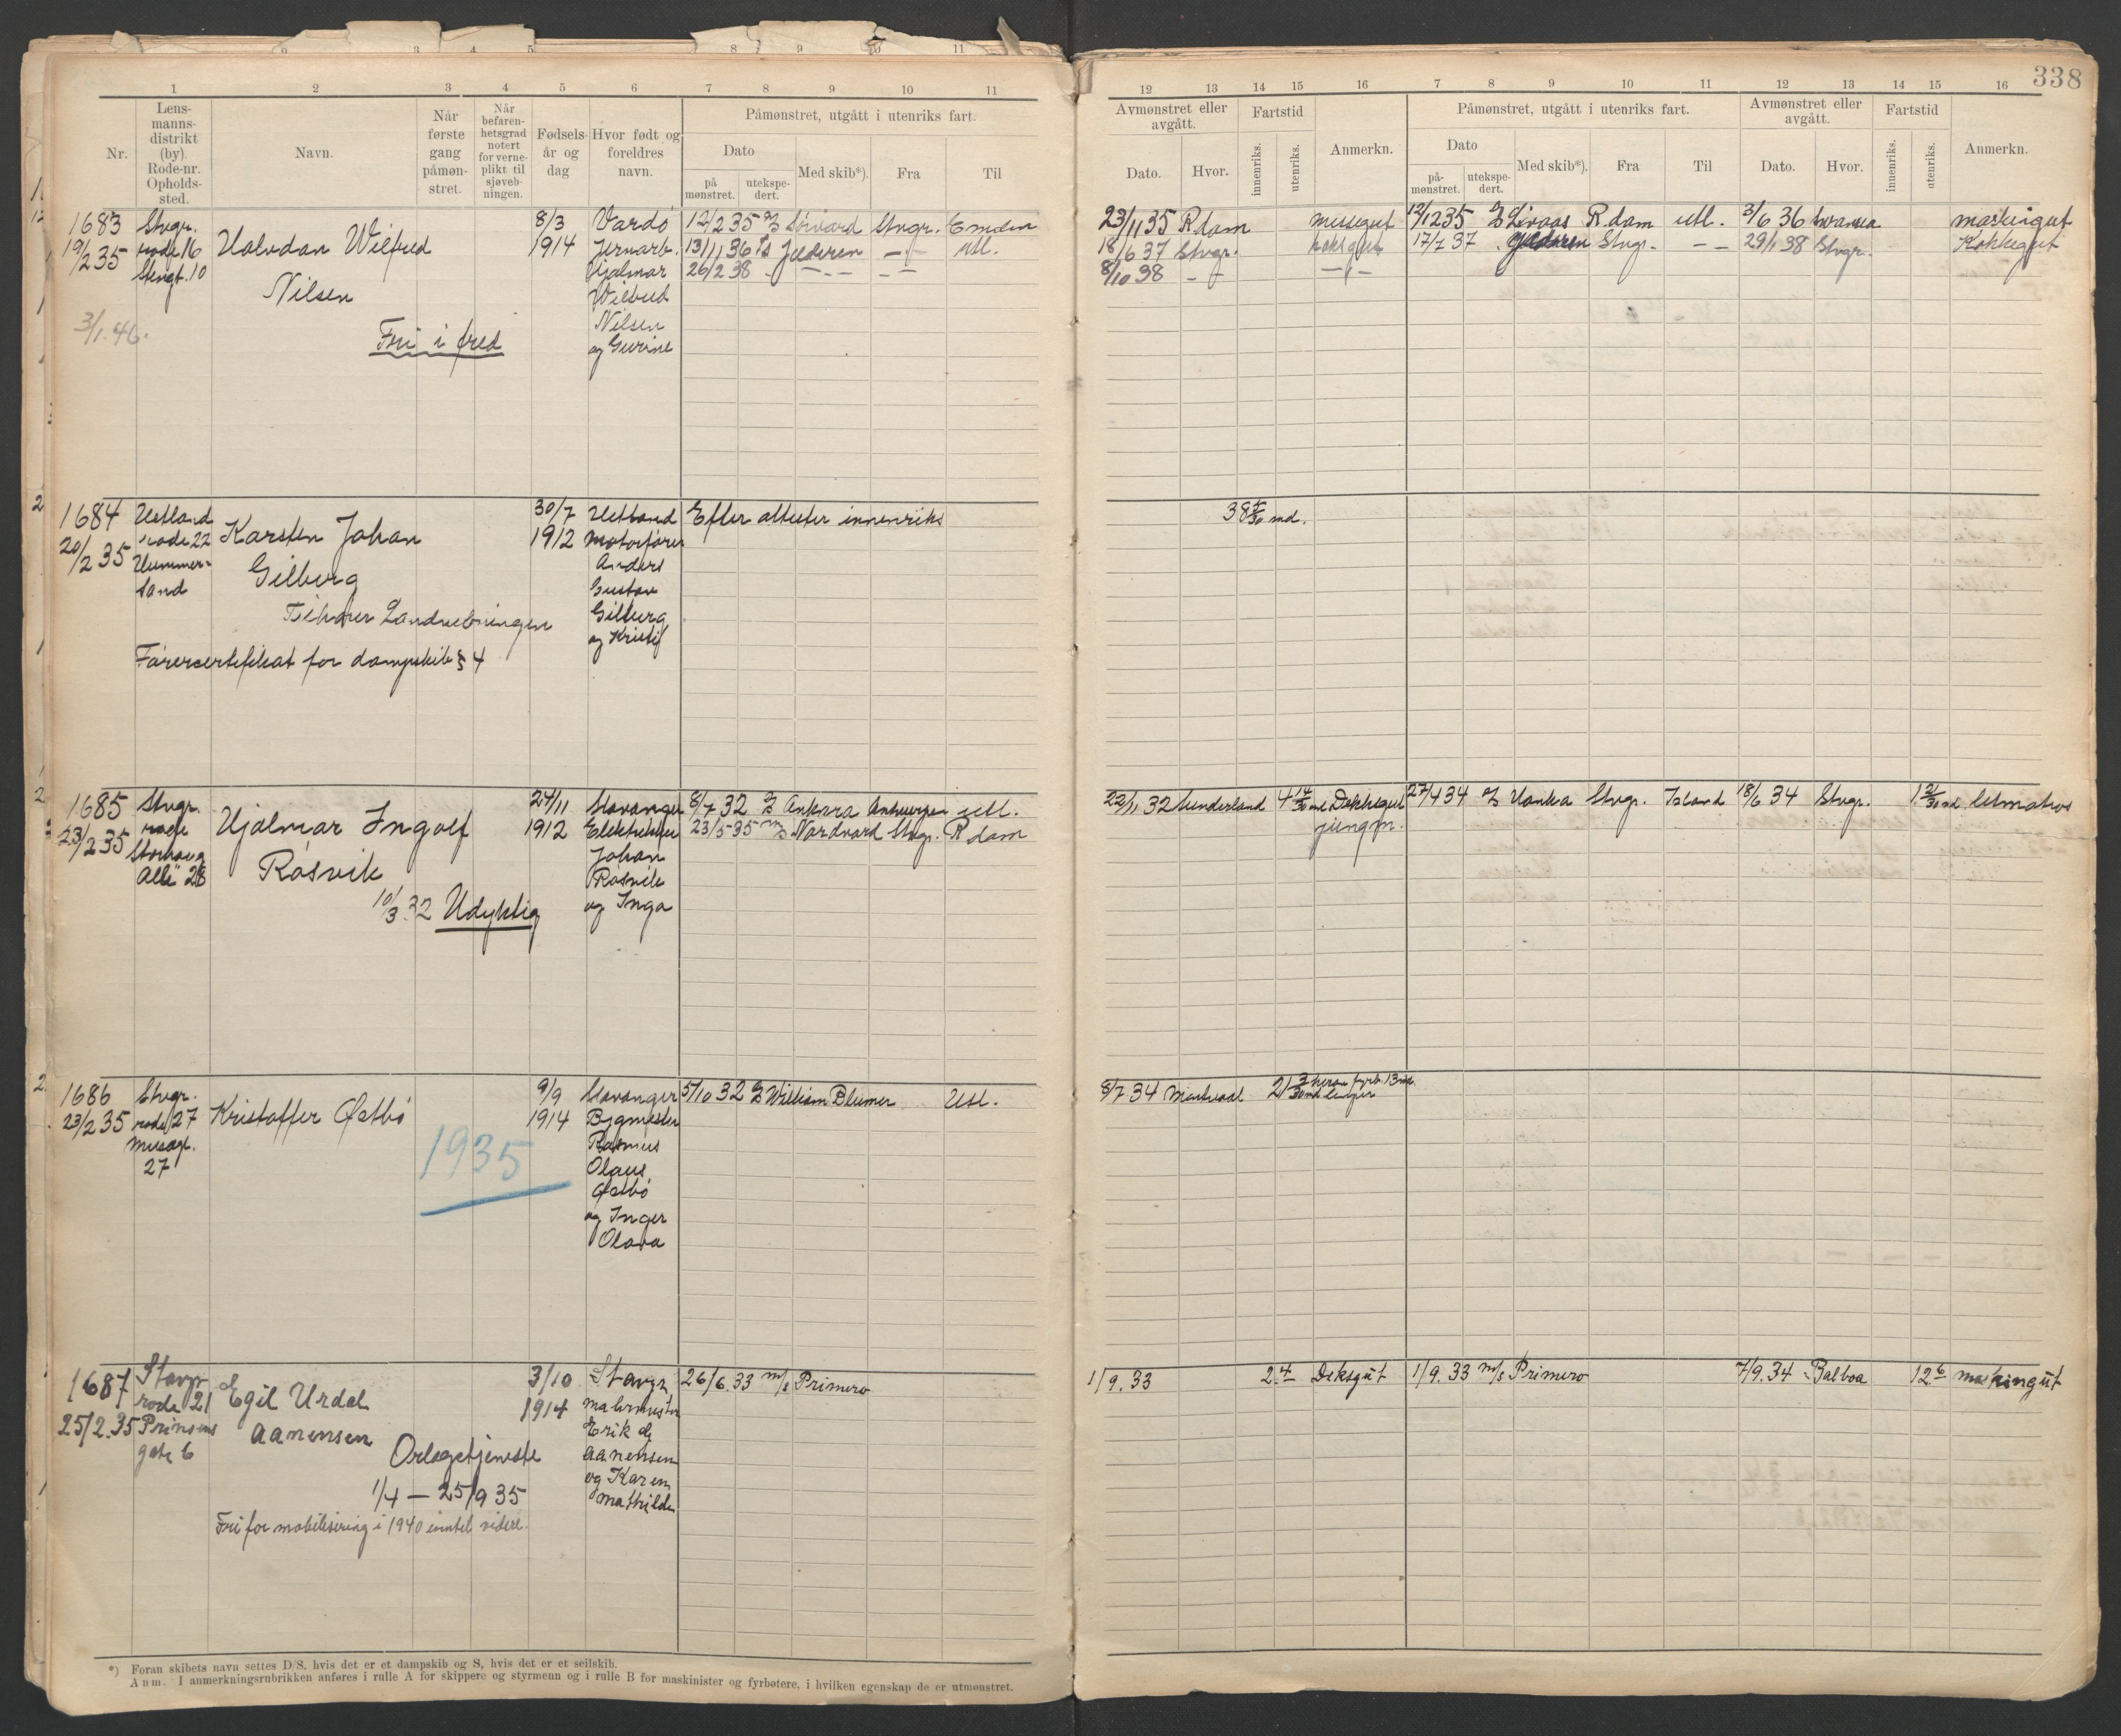 338
1 2 3 4 5 6 7 8 9 10 11
Nr.
Lens-
manns-
distrikt
(by)
Rode-nr.
Opholds-
sted.
Navn.
Når
første
gang
påmøn-
stret.
Når
befaren-
hetsgrad
notert
for verne-
plikt til
sjøveb-
ningen.
Fødsels-
år og
dag
Hvor født og
foreldres
navn.
Påmønstret, utgått i utenriks fart.
Dato
på
mønstret.
utekspe-
dert.
Med skib*).
Fra
Til
12 13 14 15 16 7 8 9 10 11 12 13 14 15 16
Avmønstret eller
avgått.
Dato.
Hvor.
Fartstid
innenriks.
utenriks.
Anmerkn.
Påmønstret, utgått i utenriks fart.
Dato
på-
mønstret.
utekspe-
dert.
Med skib*).
Fra
Til
Avmønstret eller
avgått.
Dato.
Hvor.
Fartstid
innenriks.
utenriks.
Anmerkn.
1683
19/2 35
3/1. 46.
Stvgr.
rode 16
Stengt. 10
Halvdan Wilfred
Nilsen
Fri i fred
8/3
1914
Vardø
Jernarb.
Hjalmar
Wilfred
Nilsen
og Gurine
12/2 35 Stvgr. Emden
13/11 36 Jæderen — Utl.
26/2 38 — —
23/11 35 R.dam messegut 12/12 35 R.dam utl. 3/6 36 Swansea maskingut
18/6 37 Stvgr. kokkgut 17/7 37 Jæderen Stvgr. — 29/1 38 Stvgr. Kokkegut
8/10 38 — —
1684
20/2 35
Hetland
rode 22
Hummer-
sand
Karsten Johan
Gilberg
Tilhører Landvebningen
Førercertifikat for dampskib § 4
30/7
1912
Hetland
Motorfører
Anders
Gustav
Gilberg
og Kristi
Efter attester innenriks
38 5/30 md.
1685
23/2 35
Stvgr.
rode
Storhaug
Alle 28
Hjalmar Ingolf
Rosvik
10/3 32 Udyktig
24/11
1912
Stavanger
Elektriker
Johan
Rosvik
og Inga
8/7 32 Ankara Antwerpen utl.
23/5-35 Nordvard Stvgr. R.dam
22/11 32 Sunderland 4 14/30 md Dekksgut
jungm.
27/4 34 Hanka Stvgr. Island 18/6 34 Stvgr. 1 21/30 md. letmatros
1686
23/2 35
Stvgr.
rode 27
Museegt.
27
Kristoffer Østbø
1935
9/9
1914
Stavanger
Bygmester
Rasmus
Olaus
Østbø
og Inger
Olava
5/10 32 William Blumer Utl.
8/7 34 Montreal 21 3/30 md. lemper
1687
25/2. 35
Stavgr
rode 21
Prinsens
gate 6
Egil Urdal
Aanensen
Orlogstjeneste
1/4 — 25/9 35
Fri for mobilisering i 1940 inntil videre.
3/10
1914
Stavgr.
malermester
Erik
Aanensen
og Karen
Mathilde
26/6. 33 m/s Primero
1/9. 33 2 4 Deksgut 1/9. 33 m/s Primero 7/9. 34 Balboa 12 6 maskingut
*) Foran skibets navn settes D/S, hvis det er et dampskib og S, hvis det er et seilskib.
Anm. I anmerkningsrubrikken anføres i rulle A for skippere og styrmenn og i rulle B for maskinister og fyrbøtere, i hvilken egenskap de er utmønstret.